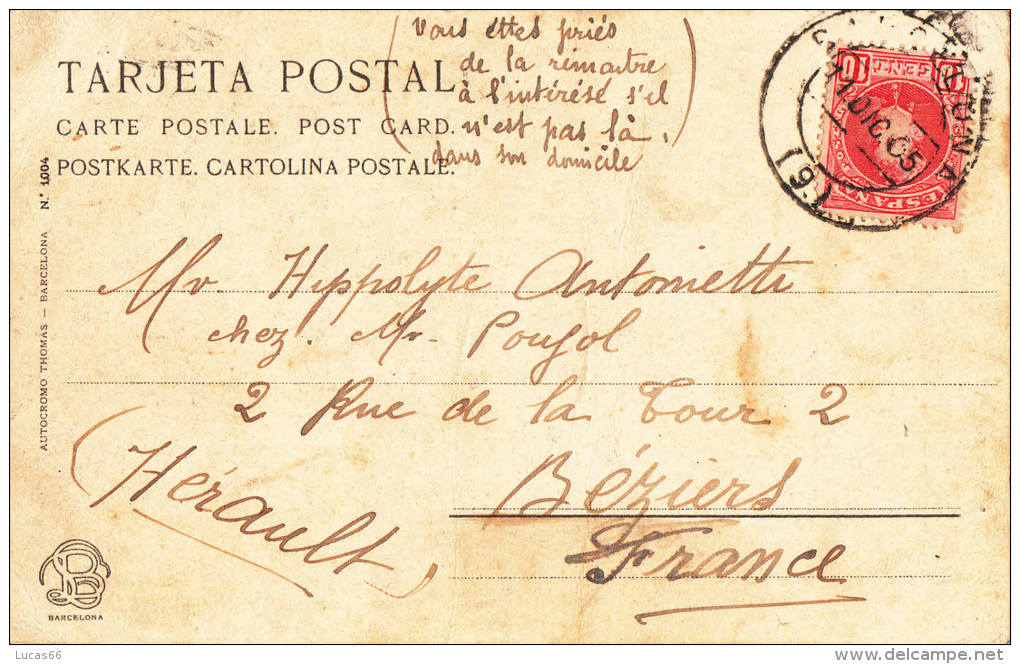 TARJETA POSTAL
CARTE POSTALE. POST CARD.
POSTKARTE. CARTOLINA POSTALE.
(Vous ettes priés
de la remaitre
à l'intérésé s'il
n'est pas là,
dans son domicile)
CENT
10
ESPAÑA
11 DIC 05
(6)
Mr Hippolyte Antonietti
chez. Mr. Poujol
2 Rue de la Tour 2
Béziers
(Hérault)
France
AUTOCROMO THOMAS — BARCELONA N.º 1004
BARCELONA
Lucas66
www.delcampe.net